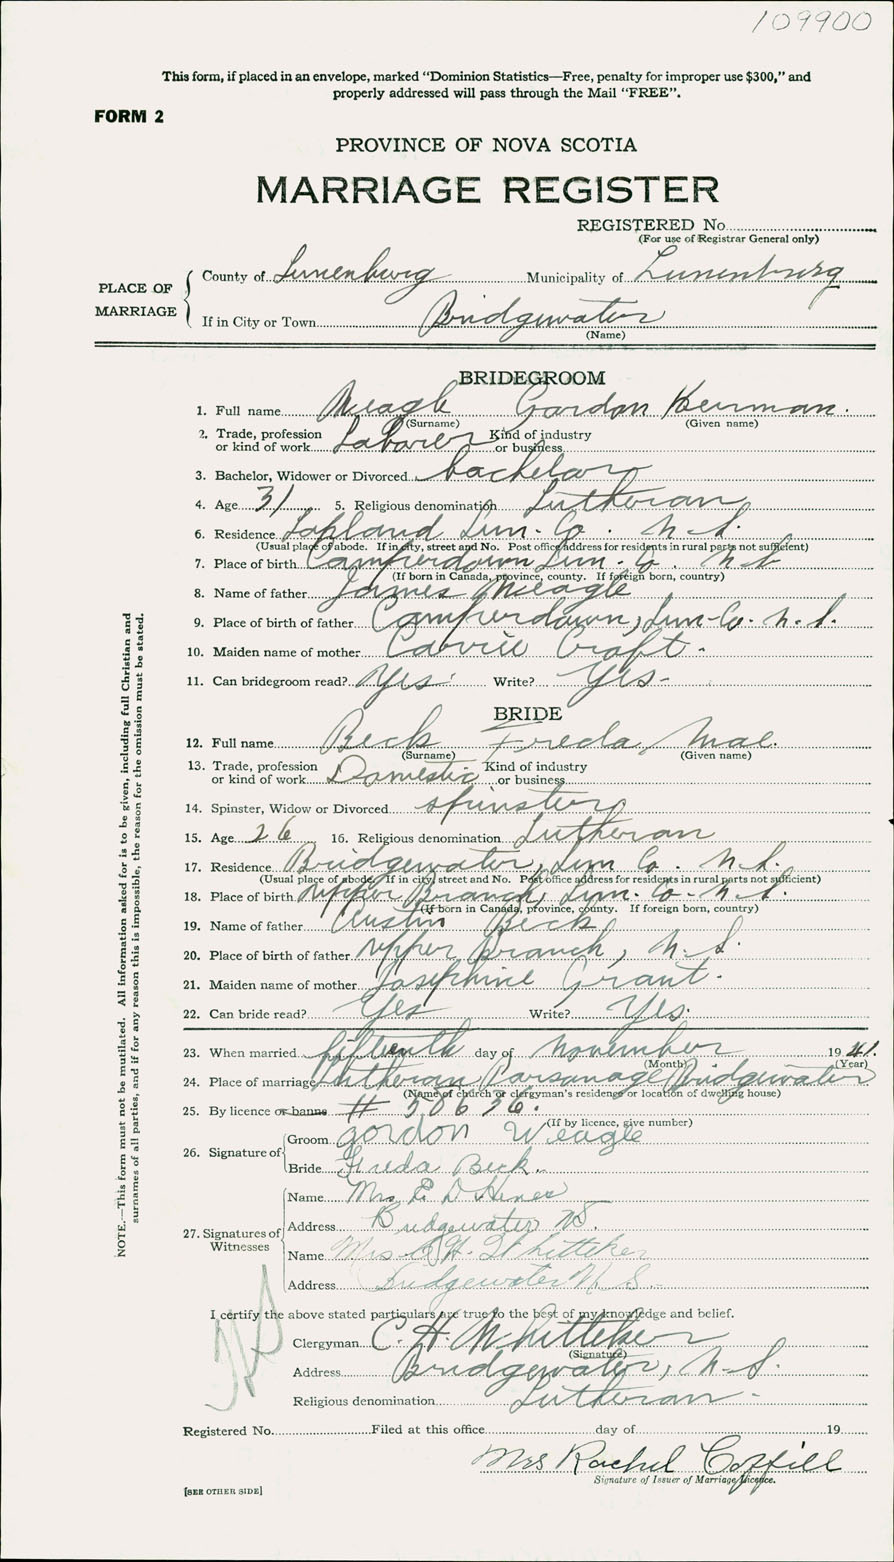 109900
This form, if placed in an envelope, marked “Dominion Statistics—Free, penalty for improper use $300,” and
properly addressed will pass through the Mail “FREE”.
FORM 2
PROVINCE OF NOVA SCOTIA
MARRIAGE REGISTER
REGISTERED No.
(For use of Registrar General only)
PLACE OF MARRIAGE
County of Lunenburg Municipality of Lunenburg
If in City or Town Bridgewater
(Name)
BRIDEGROOM
1. Full name Weagle Gordon
(Surname) (Given name)
2. Trade, profession or kind of work Laborer Kind of industry or business
3. Bachelor, Widower or Divorced bachelor
4. Age 31 5. Religious denomination Lutheran
6. Residence Lapland Lun. Co. N.S.
(Usual place of abode. If in city, street and No. Post office address for residents in rural parts not sufficient)
7. Place of birth Camperdown Lun. Co. N.S.
(If born in Canada, province, county. If foreign born, country)
8. Name of father James Weagle
9. Place of birth of father Camperdown, Lun-Co. N.S.
10. Maiden name of mother Croft.
11. Can bridegroom read? Yes Write? Yes-
BRIDE
12. Full name Beck Freda Mae.
(Surname) (Given name)
13. Trade, profession or kind of work Domestic Kind of industry or business
14. Spinster, Widow or Divorced spinster
15. Age 26 16. Religious denomination Lutheran
17. Residence Bridgewater, Lun Co. N.S.
(Usual place of abode. If in city, street and No. Post office address for residents in rural parts not sufficient)
18. Place of birth Upper Branch, Lun. Co. N.S.
(If born in Canada, province, county. If foreign born, country)
19. Name of father Austin Beck
20. Place of birth of father Upper Branch, N.S.
21. Maiden name of mother Josephine Grant.
22. Can bride read? Yes Write? Yes.
23. When married fifteenth day of November 1941.
(Month) (Year)
24. Place of marriage Lutheran Parsonage Bridgewater
(Name of church or clergyman's residence or location of dwelling house)
25. By licence or banns # 50636.
(If by licence, give number)
26. Signature of
Groom Gordon Weagle
Bride Freda Beck.
27. Signatures of Witnesses
Name Mrs E D Hines
Address Bridgewater NS.
Name Mrs C H Whitteker
Address Bridgewater N S.
I certify the above stated particulars are true to the best of my knowledge and belief.
Clergyman C. H. Whitteker
(Signature)
Address Bridgewater, N.S.
Religious denomination Lutheran.
Registered No. Filed at this office day of 19
Mrs Rachel Coffill
Signature of Issuer of Marriage Licence.
[SEE OTHER SIDE]
NOTE.—This form must not be mutilated. All information asked for is to be given, including full Christian and
surnames of all parties, and if for any reason this is impossible, the reason for the omission must be stated.